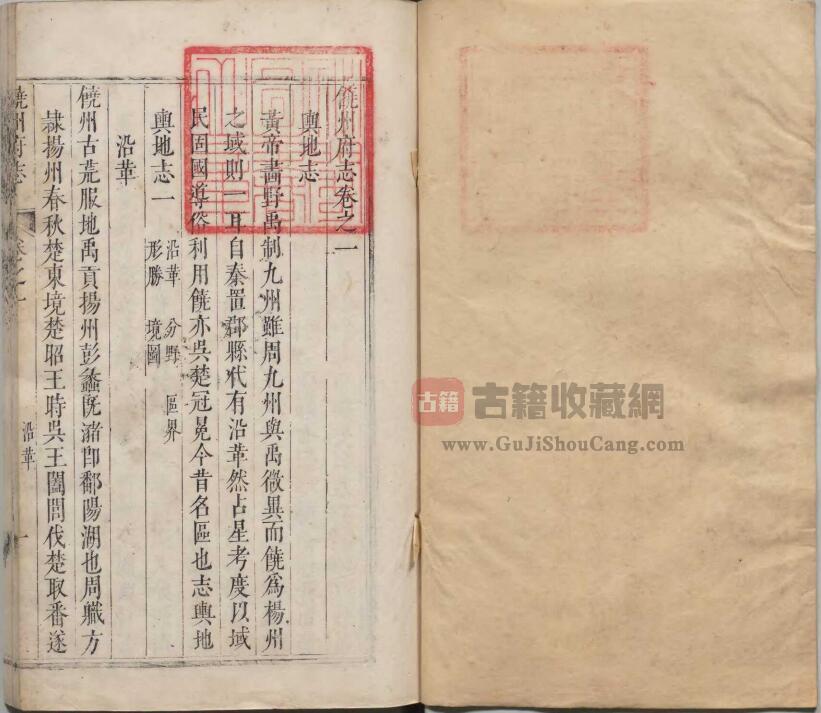 饒州府志卷之一
輿地志
黃帝畵野禹制九州雖周九州與禹微異而饒為楊州
之域則一耳自秦置郡縣代有沿革然占星考度以域
民固國導俗利用饒亦吳楚冠冕今昔名區也志輿地
輿地志一
沿革 分野 區界
形勝 境圖
沿革
饒州古荒服地禹貢揚州彭蠡既潴卽鄱陽湖也周職方
隷揚州春秋楚東境楚昭王時吳王闔閭伐楚取番遂
饒州府志
卷之一
沿革
一
古籍
古籍收藏網
www.GuJiShouCang.com